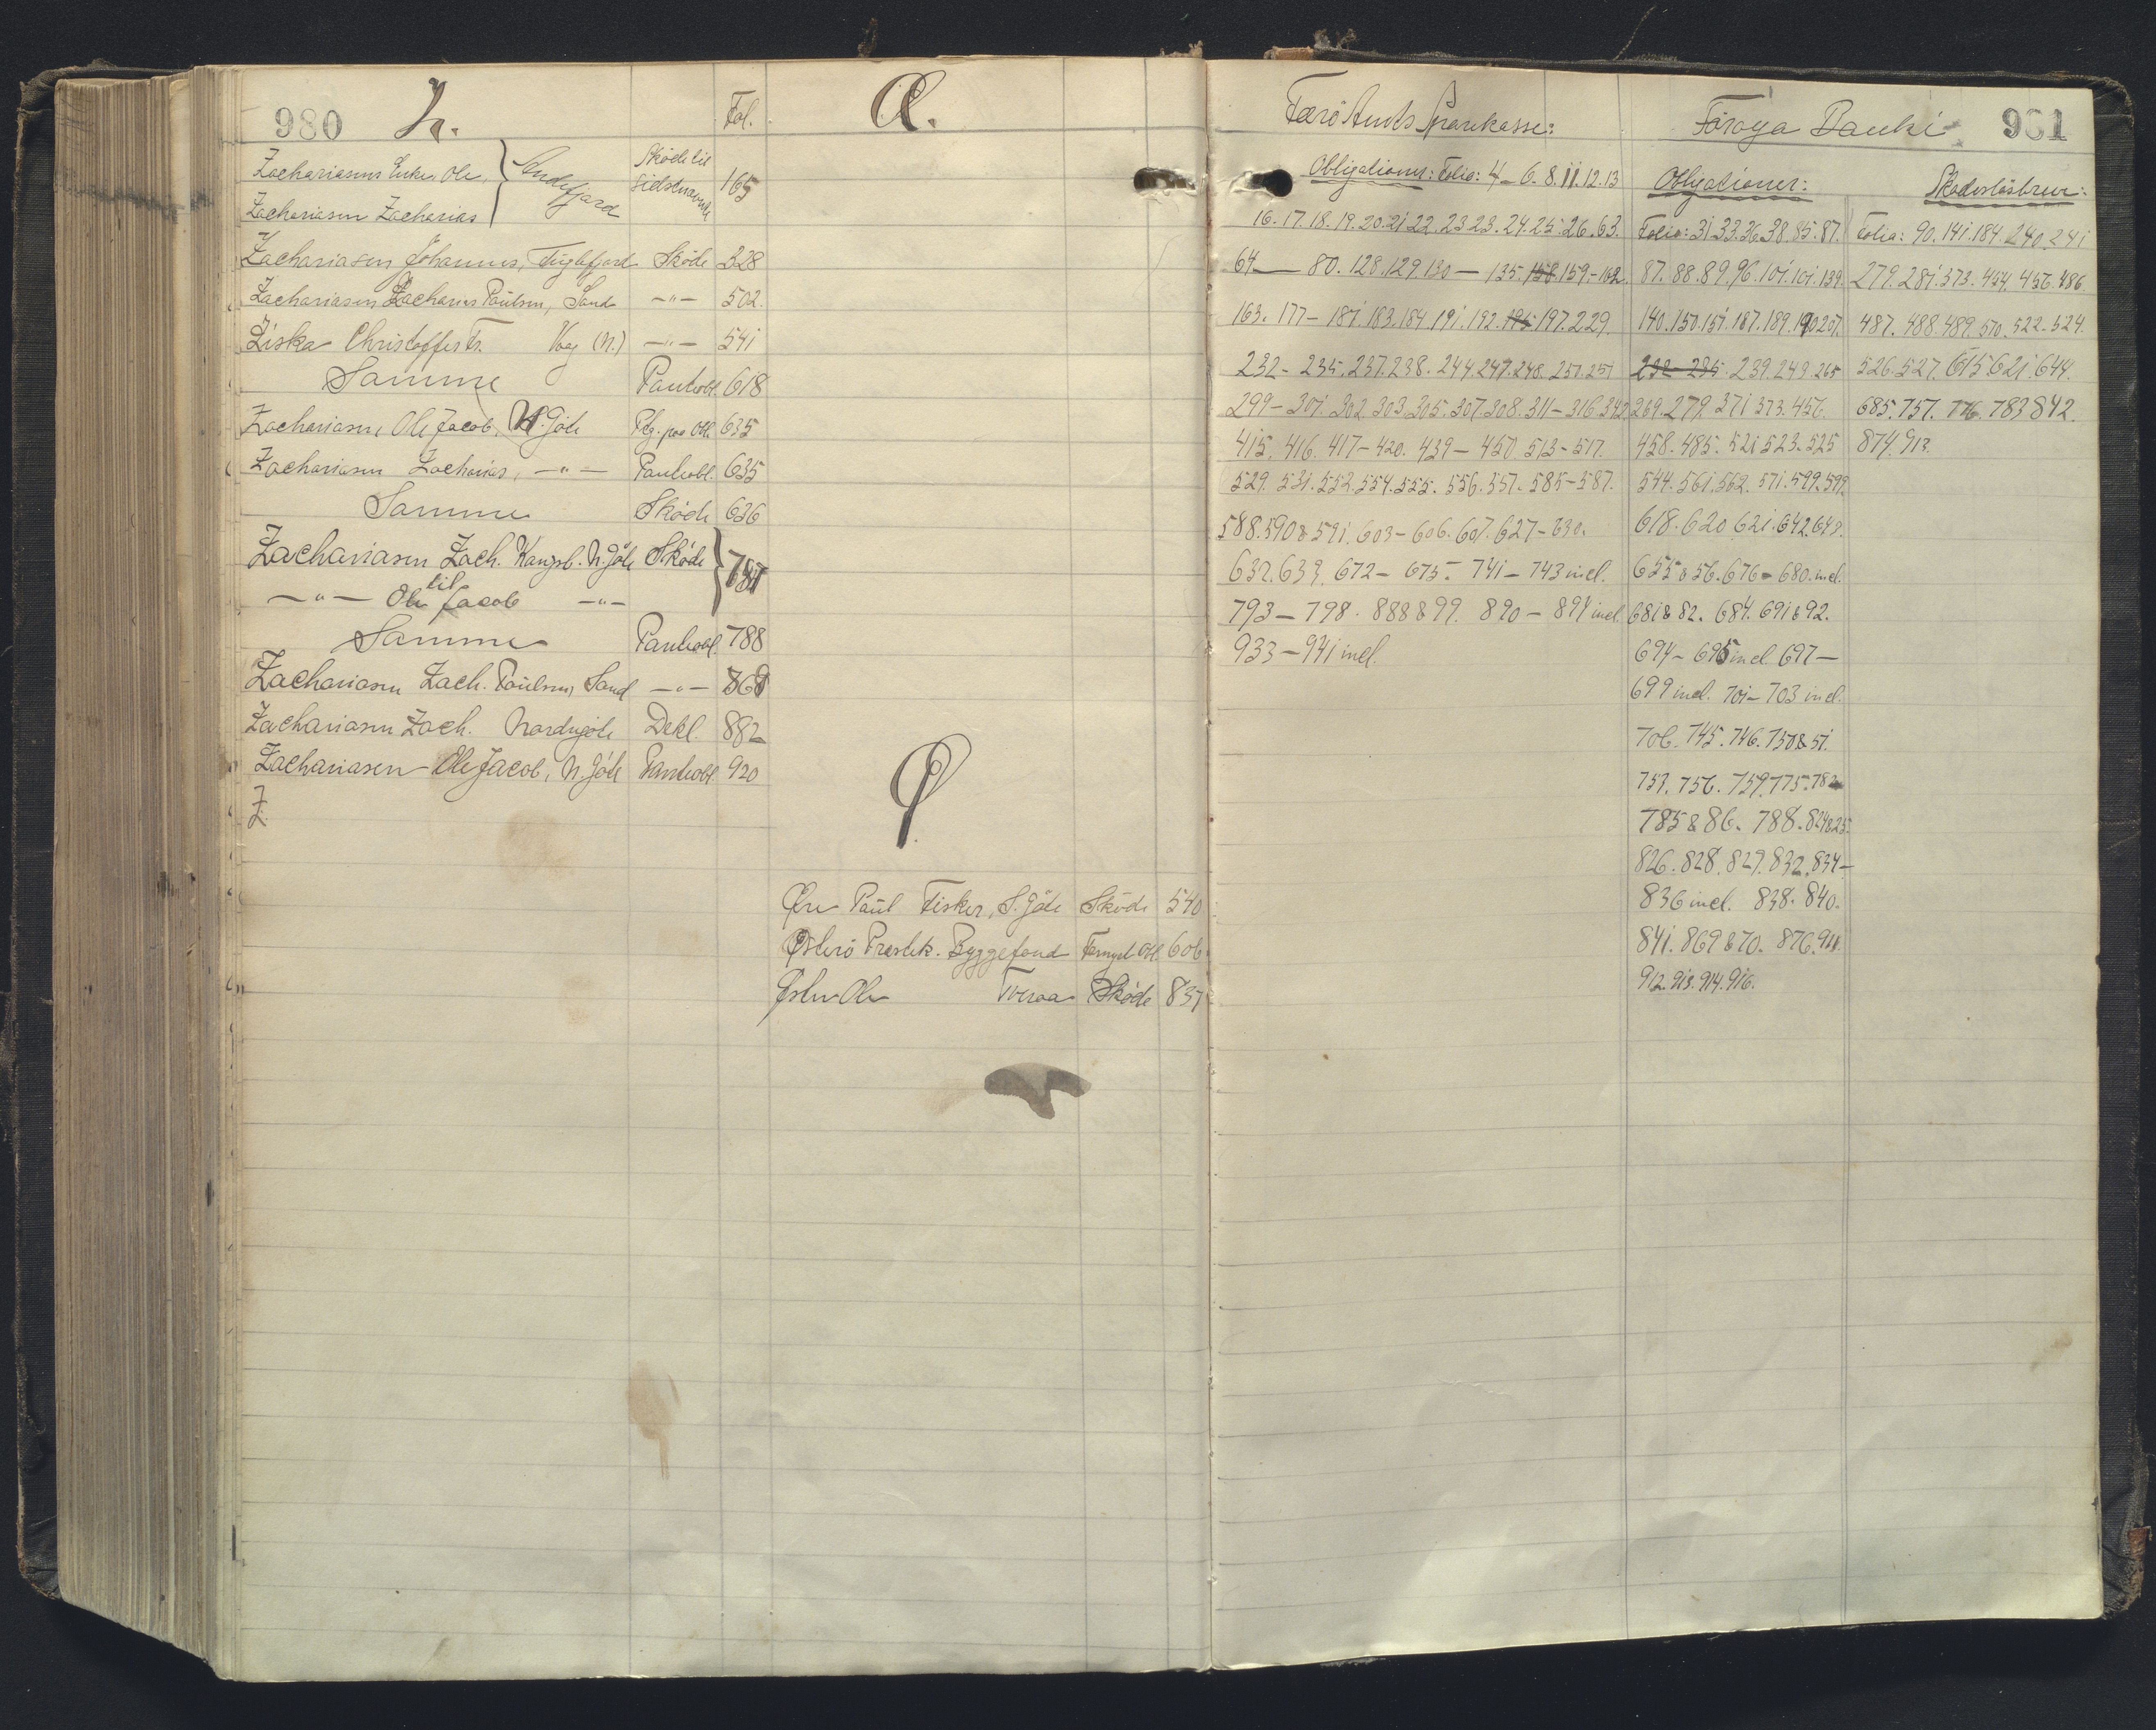 980 Z. Fol.
Zachariasens Enke, Ole, } Andefjord Sköde til sidstnævnte 165
Zachariasen Zacharias
Zachariasen Johannus, Fuglefjord Sköde 328
Zachariasen Zacharias Paulsen, Sand —"— 502.
Ziska Christoffer Fr. Vaag (N.) —"— 541
Samme Pantobl. 618
Zachariasen, Ole Jacob, N. Göte Ptg. paa Obl. 635
Zachariasen Zacharias, —"— Pantobl. 635
Samme Sköde 636
Zachariasen Zach. Kongsb. N. Göte Sköde } 787
til
—"— Ole Jacob —"—
Samme Pantobl. 788
Zachariasen Zach. Paulsen, Sand —"— 868
Zachariasen Zach. Nordregöte Dekl. 882
Zachariasen Ole Jacob, N. Göte Pantobl. 920
Z.
Z.
Æ.
Ø
Øre Paul Fisker, S. Göte Sköde 540
Østerö Præstek. Byggefond Fornyet Obl. 606
Øster Ole Tveraa Sköde 837
Færö Amts Sparekasse:
Obligationer: Folio: 4 – 6. 8. 11. 12. 13
16. 17. 18. 19. 20. 21 22. 23 23. 24. 25. 26. 63.
64 — 80. 128. 129. 130 — 135. 158. 159.-162.
163. 177 – 181. 183. 184 191. 192. 195 197. 229.
232 – 235. 237. 238. 244. 247. 248. 251. 257
299 – 301. 302. 303. 305. 307. 308. 311 – 316. 342.
415. 416. 417 – 420. 439 – 450. 513 – 517.
529. 531. 552. 554. 555. 556. 557. 585 – 587.
588. 590 & 591. 603 – 606. 607. 627 – 630.
632. 639. 672 – 675. 741 – 743 incl.
793 – 798. 888 & 99. 890 – 894 incl.
933 – 941 incl.
Föroya Banki 981
Obligationer:
Folio: 31 33. 36. 38. 85. 87.
87. 88. 89. 96. 101. 101. 139.
140. 150. 151. 187. 189. 190 207.
232 – 235. 239. 249. 265
269. 279. 371 373. 456.
458. 485. 521 523. 525
544. 561. 562. 571. 579. 599.
618. 620 621. 642. 643.
655 & 56. 676 – 680. incl.
681 & 82. 684. 691 & 92.
694 – 695 incl. 697 –
699 incl. 701 – 703 incl.
706. 745. 746. 750 & 51.
753. 756. 759. 775. 782
785 & 86. 788. 824 & 25.
826. 828. 829. 832. 834 –
836 incl. 838. 840.
841. 869 & 70. 876. 911.
912. 913. 914. 916.
Skadeslösbreve:
Folio: 90. 141. 184. 240. 241
279. 281. 373. 454. 456. 486
487. 488. 489. 510. 522. 524.
526. 527. 615. 621. 644.
685. 757. 776. 783 842.
874. 913.